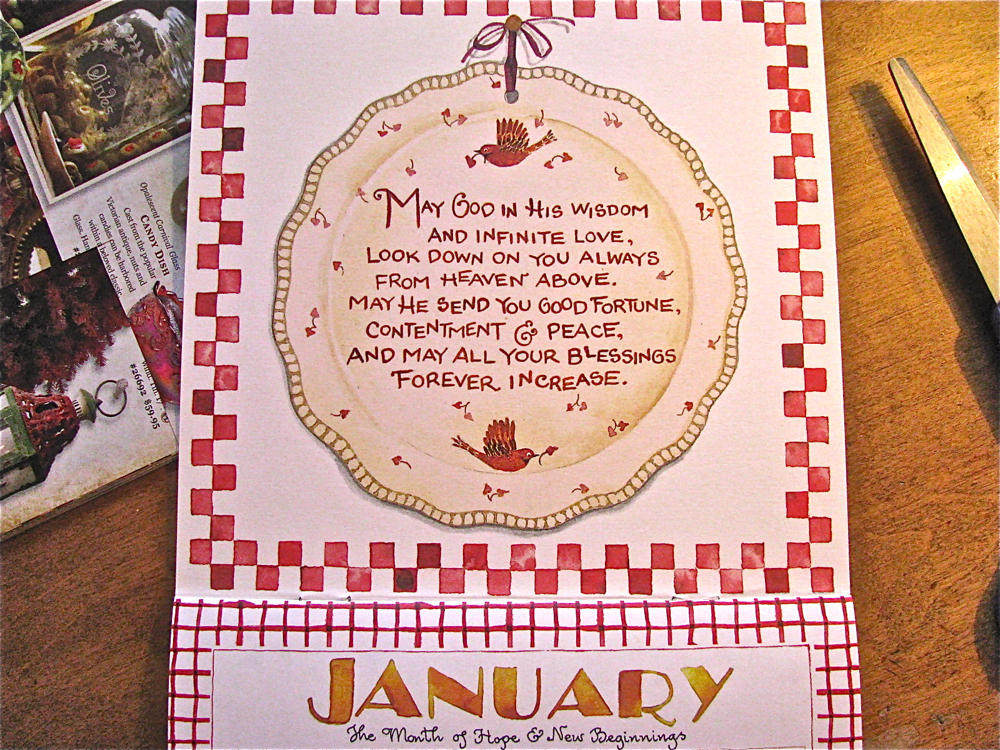 Olives
Opalescent Carnival Glass
CANDY DISH
Cast from the popular
Victorian antique, nuts and
candies can be harbored
within a beloved classic.
Glass.
#26692 $59.95
MAY GOD IN HIS WISDOM
AND INFINITE LOVE,
LOOK DOWN ON YOU ALWAYS
FROM HEAVEN ABOVE.
MAY HE SEND YOU GOOD FORTUNE,
CONTENTMENT & PEACE,
AND MAY ALL YOUR BLESSINGS
FOREVER INCREASE.
JANUARY
The Month of Hope & New Beginnings